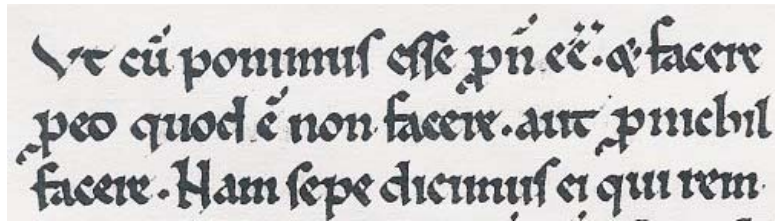 Ut cū ponimuſ eſſe ꝓ ñ eē. & facere
ꝓ eo quod ē non facere. aut ꝓ nichil
facere. Nam ſepe dicimuſ ei qui rem